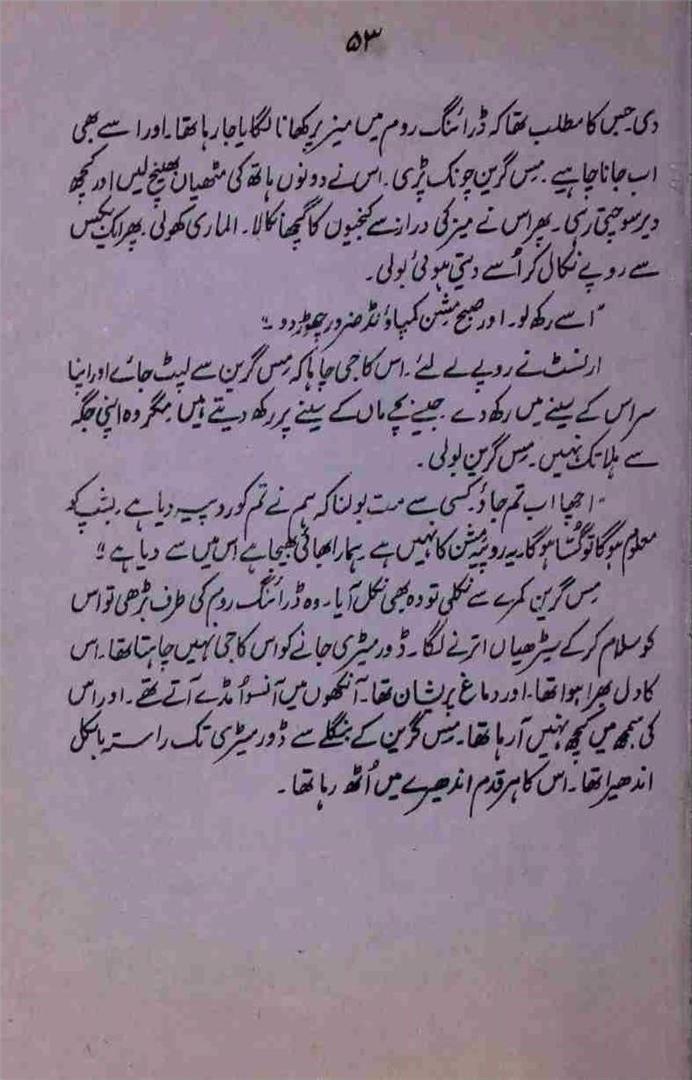 ۵۳
دی جس کا مطلب تھا کہ ڈرائنگ روم میں میز پر کھانا لگایا جا رہا تھا۔ اور اسے بھی
اب جانا چاہیے۔ مس گرین چونک پڑی۔ اس نے دونوں ہاتھ کی مٹھیاں بھینچ لیں اور کچھ
دیر سوچتی رہی۔ پھر اس نے میز کی دراز سے کنجیوں کا گچھا نکالا۔ الماری کھولی پھر ایک بکس
سے روپے نکال کر اُسے دیتی ہوئی بولی۔
"اسے رکھ لو۔ اور صبح مشن کمپاؤنڈ ضرور چھوڑ دو۔"
ارنسٹ نے روپے لے لئے۔ اس کا جی چاہا کہ مِس گرین سے لپٹ جائے اور اپنا
سر اس کے سینے میں رکھ دے۔ جیسے بچے ماں کے سینے پر رکھ دیتے ہیں مگر وہ اپنی جگہ
سے ہلا تک نہیں۔ مِس گرین بولی۔
"اچھا اب تم جاؤ۔ کسی سے مت بولنا کہ ہم نے تم کو روپیہ دیا ہے۔ بشپ کو
معلوم ہوگا تو گسّا ہوگا۔ یہ روپیہ مِشن کا نہیں ہے۔ ہمارا بھائی بھیجا ہے اس میں سے دیا ہے"
مِس گرین کمرے سے نکلی تو وہ بھی نکل آیا۔ وہ ڈرائنگ روم کی طرف بڑھی تو اس
کو سلام کر کے سیڑھیاں اترنے لگا۔ ڈورمیٹری جانے کو اس کا جی نہیں چاہتا تھا۔ اس
کا دل بھرا ہوا تھا۔ اور دماغ پریشان تھا۔ آنکھوں میں آنسو اُمڈے آتے تھے۔ اور اس
کی سمجھ میں کچھ نہیں آ رہا تھا۔ مِس گرین کے بنگلے سے ڈورمیٹری تک راستہ بالکل
اندھیرا تھا۔ اس کا ہر قدم اندھیرے میں اُٹھ رہا تھا۔